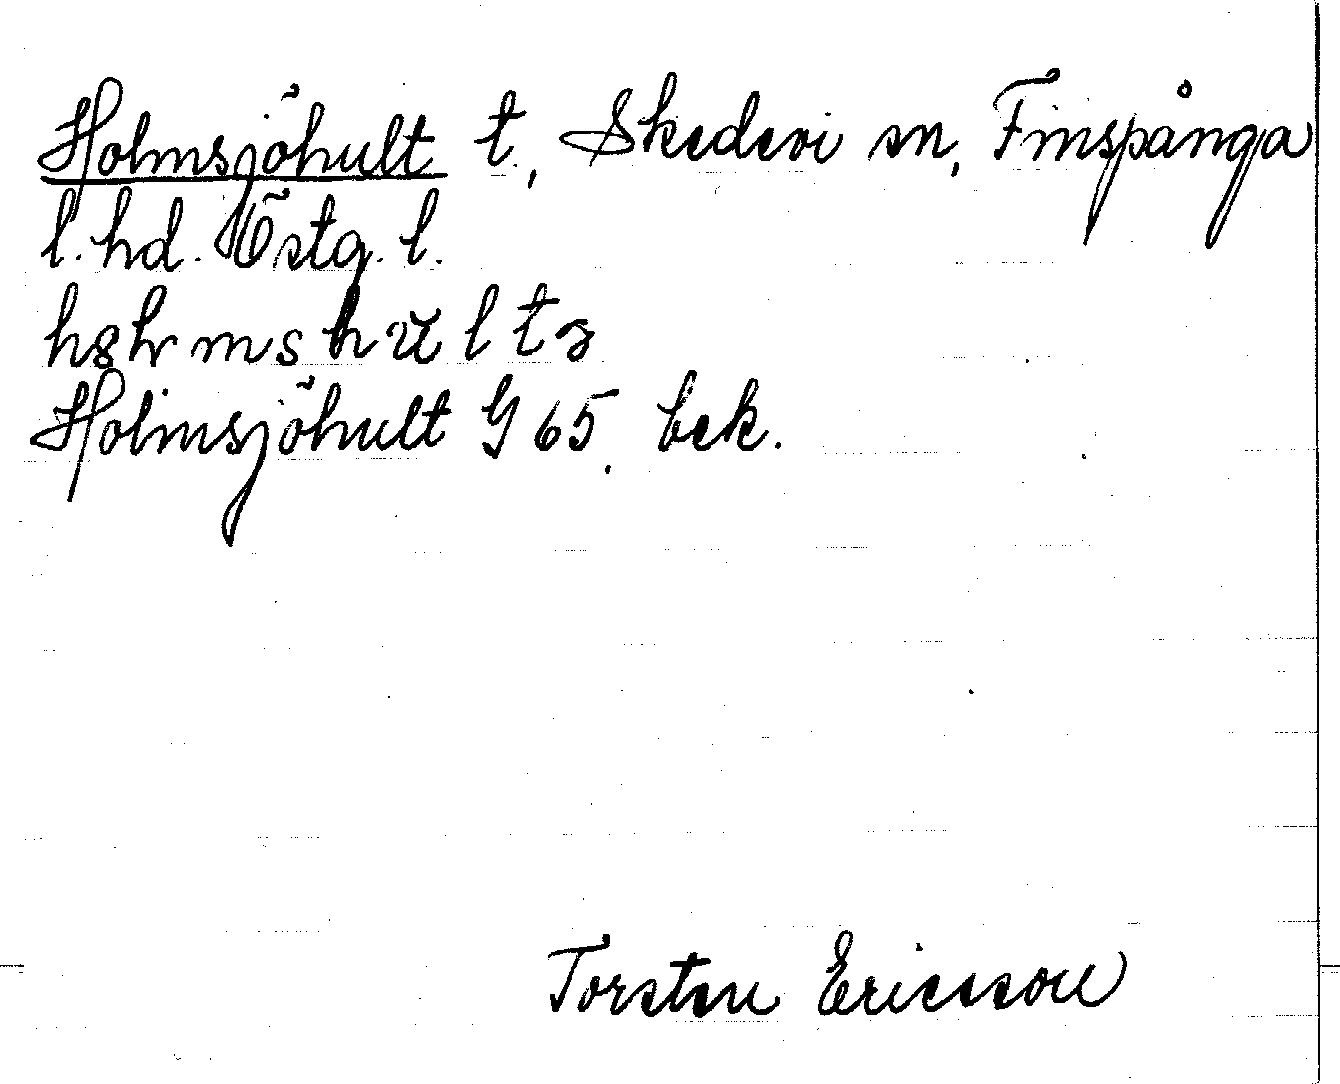 Holmsjöhult t., Skedevi sn, Finspånga
l. hd. Östg. l.
Holmsjöhult G 65, bek.
Torsten Ericsson